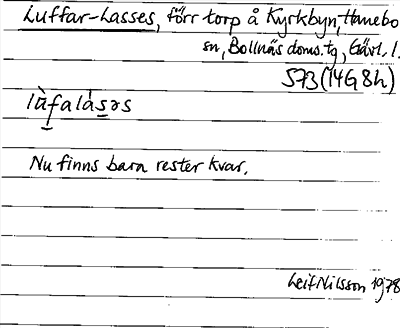 Luffar-Lasses, förr torp å Kyrkbyn, Hanebo
sn, Bollnäs doms. tg, Gävl. l.
S73 (14G8h)
lùfalásəs
Nu finns bara rester kvar.
Leif Nilsson 1978